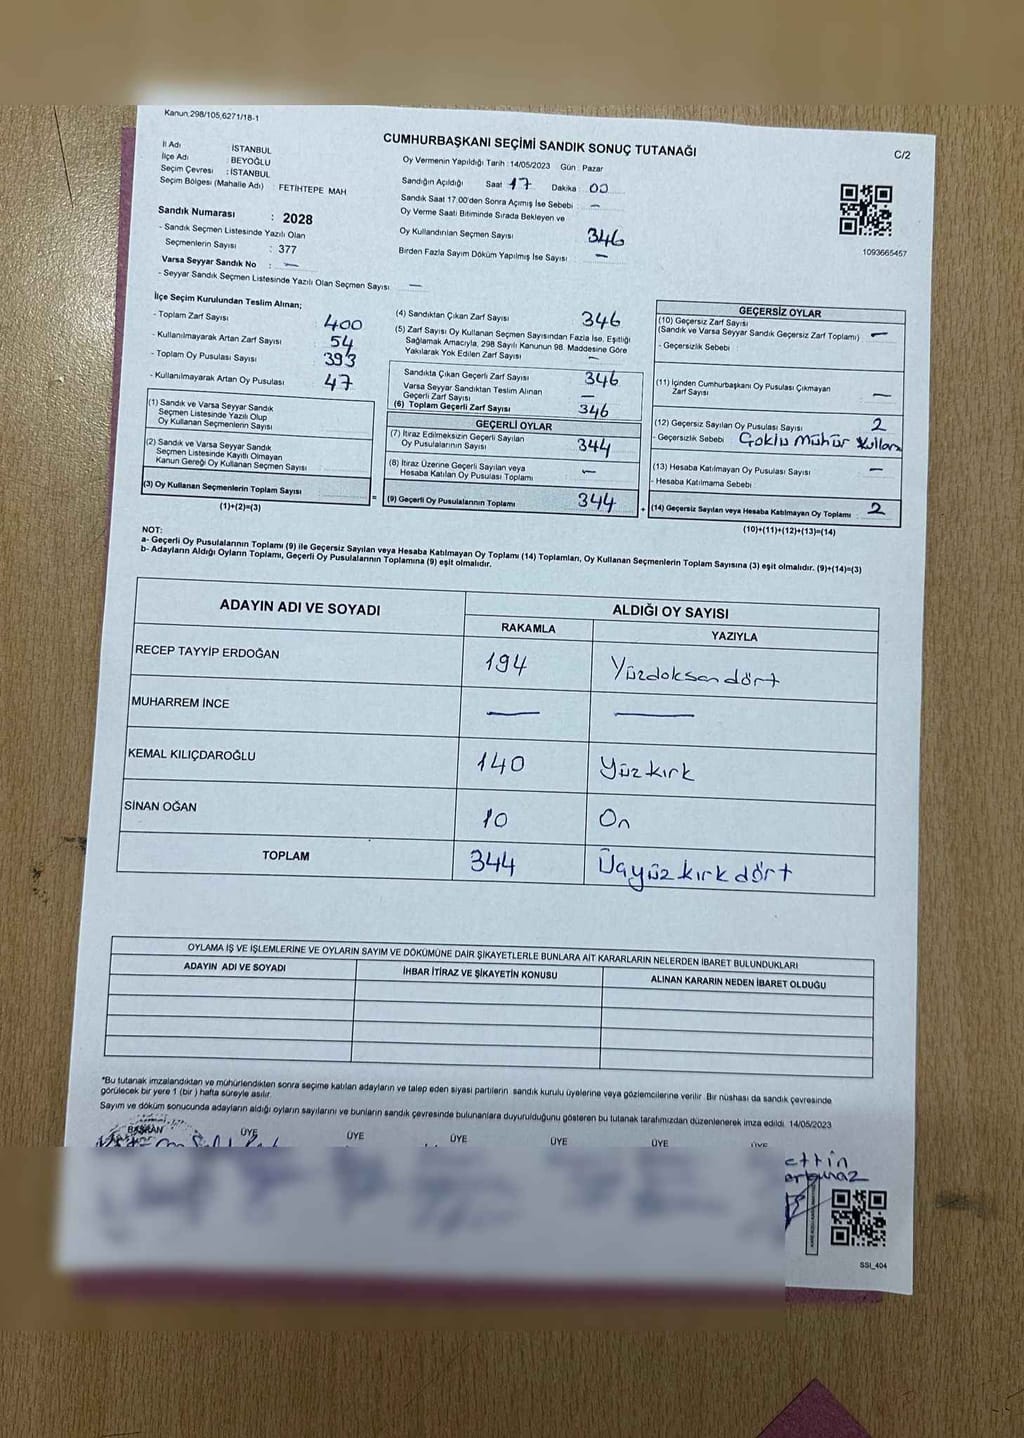 Kanun,298/105,6271/18-1
CUMHURBAŞKANI SEÇİMİ SANDIK SONUÇ TUTANAĞI
C/2
İl Adı İSTANBUL
İlçe Adı : BEYOĞLU
Seçim Çevresi : İSTANBUL
Seçim Bölgesi (Mahalle Adı) FETİHTEPE MAH
Sandık Numarası : 2028
- Sandık Seçmen Listesinde Yazılı Olan
Seçmenlerin Sayısı : 377
Varsa Seyyar Sandık No : —
- Seyyar Sandık Seçmen Listesinde Yazılı Olan Seçmen Sayısı —
Oy Vermenin Yapıldığı Tarih : 14/05/2023 Gün : Pazar
Sandığın Açıldığı Saat 17 Dakika 00
Sandık Saat 17.00'den Sonra Açımış İse Sebebi : —
Oy Verme Saati Bitiminde Sırada Bekleyen ve
Oy Kullandırılan Seçmen Sayısı 346
Birden Fazla Sayım Döküm Yapılmış İse Sayısı —
1093665457
İlçe Seçim Kurulundan Teslim Alınan;
- Toplam Zarf Sayısı 400
- Kullanılmayarak Artan Zarf Sayısı 54
- Toplam Oy Pusulası Sayısı 393
- Kullanılmayarak Artan Oy Pusulası 47
(1) Sandık ve Varsa Seyyar Sandık
Seçmen Listesinde Yazılı Olup
Oy Kullanan Seçmenlerin Sayısı
(2) Sandık ve Varsa Seyyar Sandık
Seçmen Listesinde Kayıtlı Olmayan
Kanun Gereği Oy Kullanan Seçmen Sayısı
(3) Oy Kullanan Seçmenlerin Toplam Sayısı
(1)+(2)=(3)
(4) Sandıktan Çıkan Zarf Sayısı 346
(5) Zarf Sayısı Oy Kullanan Seçmen Sayısından Fazla İse, Eşitliği
Sağlamak Amacıyla, 298 Sayılı Kanunun 98. Maddesine Göre
Yakılarak Yok Edilen Zarf Sayısı
Sandıkta Çıkan Geçerli Zarf Sayısı 346
Varsa Seyyar Sandıktan Teslim Alınan
Geçerli Zarf Sayısı —
(6) Toplam Geçerli Zarf Sayısı 346
GEÇERLİ OYLAR
(7) İtiraz Edilmeksizin Geçerli Sayılan
Oy Pusulalarının Sayısı 344
(8) İtiraz Üzerine Geçerli Sayılan veya
Hesaba Katılan Oy Pusulası Toplamı —
(9) Geçerli Oy Pusulalarının Toplamı 344
GEÇERSİZ OYLAR
(10) Geçersiz Zarf Sayısı
(Sandık ve Varsa Seyyar Sandık Geçersiz Zarf Toplamı) —
- Geçersizlik Sebebi
(11) İçinden Cumhurbaşkanı Oy Pusulası Çıkmayan
Zarf Sayısı —
(12) Geçersiz Sayılan Oy Pusulası Sayısı 2
- Geçersizlik Sebebi Çoklu Mühür kullanı
(13) Hesaba Katılmayan Oy Pusulası Sayısı —
- Hesaba Katılmama Sebebi
(14) Geçersiz Sayılan veya Hesaba Katılmayan Oy Toplamı 2
(10)+(11)+(12)+(13)=(14)
NOT:
a- Geçerli Oy Pusulalarının Toplamı (9) ile Geçersiz Sayılan veya Hesaba Katılmayan Oy Toplamı (14) Toplamları, Oy Kullanan Seçmenlerin Toplam Sayısına (3) eşit olmalıdır. (9)+(14)=(3)
b- Adayların Aldığı Oyların Toplamı, Geçerli Oy Pusulalarının Toplamına (9) eşit olmalıdır.
ADAYIN ADI VE SOYADI ALDIĞI OY SAYISI
RAKAMLA YAZIYLA
RECEP TAYYİP ERDOĞAN 194 Yüzdoksan dört
MUHARREM İNCE — —
KEMAL KILIÇDAROĞLU 140 Yüz kırk
SİNAN OĞAN 10 On
TOPLAM 344 Üçyüz kırk dört
OYLAMA İŞ VE İŞLEMLERİNE VE OYLARIN SAYIM VE DÖKÜMÜNE DAİR ŞİKAYETLERLE BUNLARA AİT KARARLARIN NELERDEN İBARET BULUNDUKLARI
ADAYIN ADI VE SOYADI İHBAR İTİRAZ VE ŞİKAYETİN KONUSU ALINAN KARARIN NEDEN İBARET OLDUĞU
*Bu tutanak imzalandıktan ve mühürlendikten sonra seçime katılan adayların ve talep eden siyasi partilerin sandık kurulu üyelerine veya gözlemcilerine verilir. Bir nüshası da sandık çevresinde
görülecek bir yere 1 (bir ) hafta süreyle asılır.
Sayım ve döküm sonucunda adayların aldığı oyların sayılarını ve bunların sandık çevresinde bulunanlara duyurulduğunu gösteren bu tutanak tarafımızdan düzenlenerek imza edildi. 14/05/2023
BAŞKAN ÜYE ÜYE ÜYE ÜYE ÜYE ÜYE
ettin
SSI_404